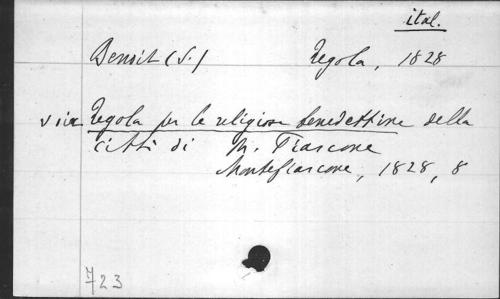 ital.
Benoit (S.) Regola, 1828
Regola per le religiose benedettine della
città di M. Fiascone
Montefiascone, 1828, 8
723